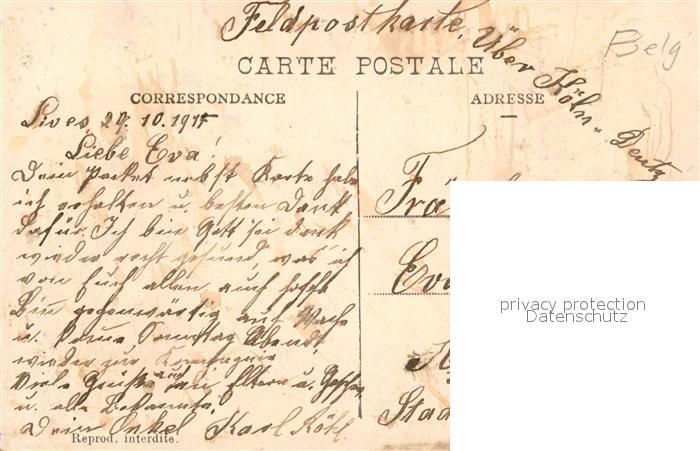 Feldpostkarte.
Über Köln-Deutz
Belg
CARTE POSTALE
CORRESPONDANCE
ADRESSE
29.10.1915
Liebe Eva!
Dein Packet nebst Karte habe
ich erhalten u. besten Dank
dafür. Ich bin Gott sei dank
wieder recht gesund, was ich
von Euch allen auch hoffe
Bin gegenwärtig auf Wache
u. komme Samstag Abend
wieder zur Kompagnie
Viele Grüße auch an Eltern u. Geschw.
u. alle Bekannte.
Dein Onkel Karl Röhl
Reprod. interdite.
Frä
Eva
Staa
privacy protection
Datenschutz